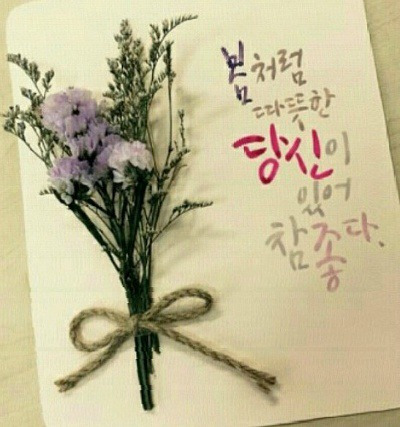 봄처럼
따뜻한
당신이
있어
참 좋다.